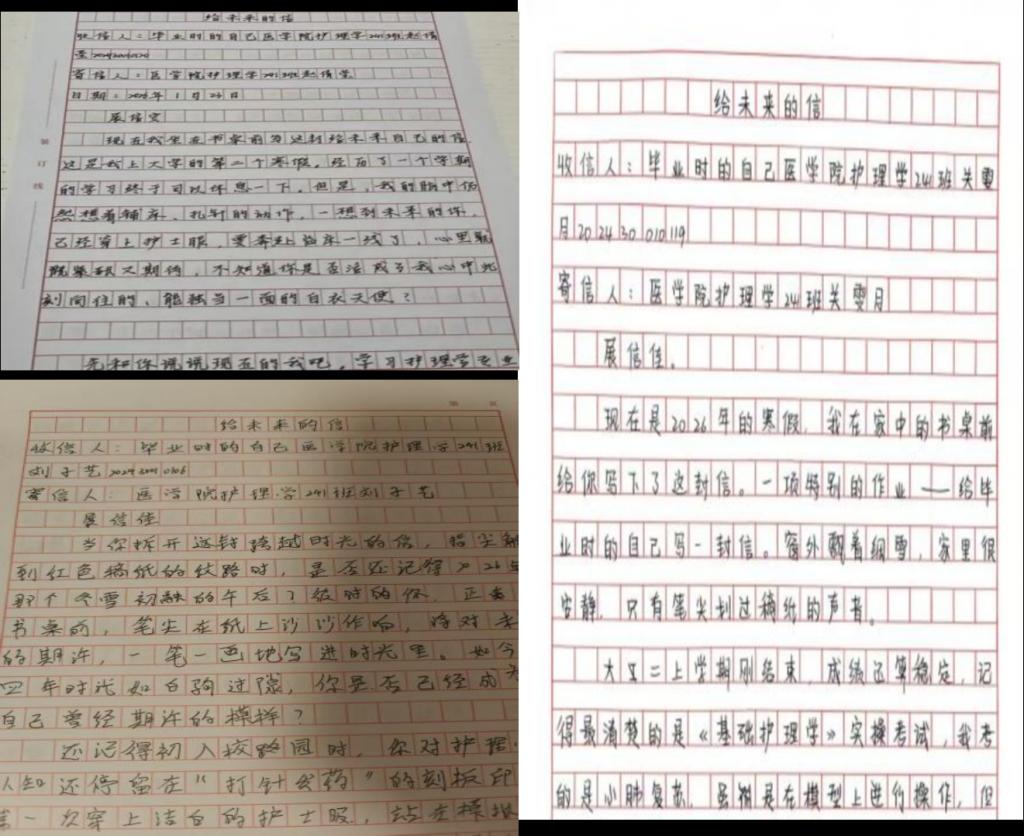 给未来的信
收信人：毕业时的的自己医学院护理学241班赵倩
寄信人：医学院护理学241班赵倩雯
日期：2026年1月23日
展信安
现在我坐在书桌前为这封给未来自己的信
这是我上大学的第二个寒假，经历了一个学期
的学习终于可以休息一下，但是，我的脑中仍
然想着铺床、扎针的动作，一想到未来的你，
已经穿上护士服，要奔赴临床一线了，心里既
紧张又期待，不知道你是否活成了我心中此
刻向往的、能独当一面的白衣天使？
先和你说说现在的我吧，学习护理学专业
装订线
第 页
给未来的信
收信人：毕业时的自己医学院护理学241班
刘子艺2024300106
寄信人：医学院护理学241班刘子艺
展信佳
当你拆开这封跨越时光的信，指尖触
到红色稿纸的纹路时，是否还记得2026年
那个冬雪初融的午后？彼时的你，正坐
书桌前，笔尖在纸上沙沙作响，将对未
的期许，一笔一画地写进时光里。如今
四年时光如白驹过隙，你是否已经成为
自己曾经期许的模样？
还记得初入校园时，你对护理
认知还停留在“打针发药”的刻板印
第一次穿上洁白的护士服，站在模拟
给未来的信
收信人：毕业时的自己医学院护理学241班关雯
月202430010119
寄信人：医学院护理学241班关雯月
展信佳。
现在是2026年的寒假，我在家中的书桌前
给你写下了这封信。一项特别的作业——给毕
业时的自己写一封信。窗外飘着细雪，家里很
安静，只有笔尖划过稿纸的声音。
大二上学期刚结束，成绩还算稳定，记
得最清楚的是《基础护理学》实操考试，我考
的是心肺复苏，虽然是在模型上进行操作，但